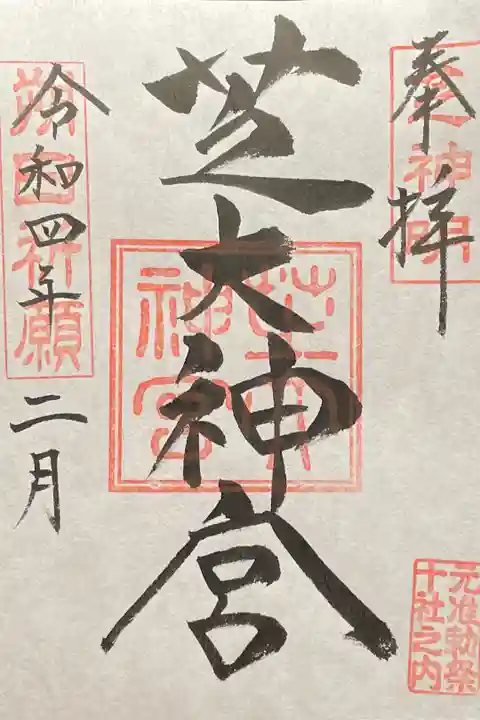 奉拝
芝神明
芝大神宮
芝大神宮
令和四年二月
朔日祈願
元准勅祭
十社之内